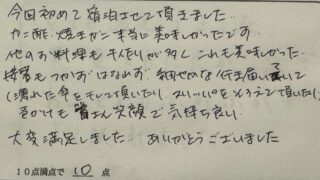 今回初めて宿泊させて頂きました。
カニ酢・焼きガニ本当に美味しかったです。
他のお料理も手作りが多く これも美味しかった。
接客もつかずはなれず、細やかな行き届いていて
(濡れた傘を干して頂いたり、スリッパをそろえて頂いたり)
声かけも皆さん笑顔で気持ち良い
大変満足しました。ありがとうございました
10点満点で 10 点